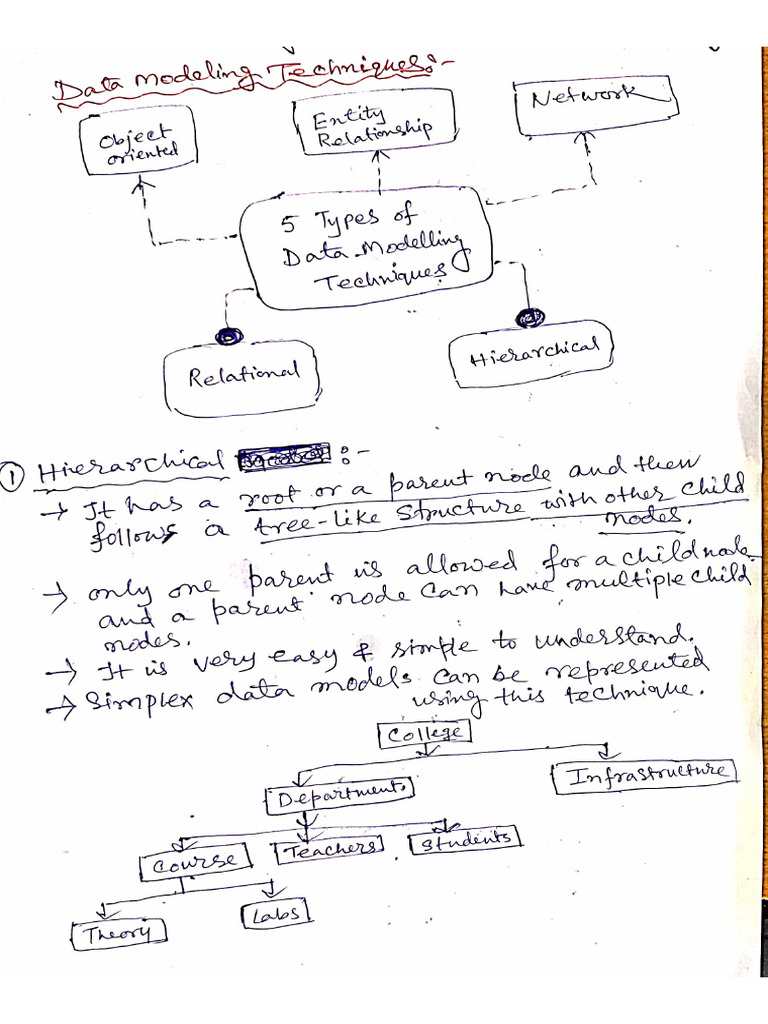 Data Modeling Techniques:-
Object
oriented
Entity
Relationship
Network
5 Types of
Data Modelling
Techniques
Relational
Hierarchical
① Hierarchical :-
→ It has a root or a parent node and then
follows a tree-like structure with other child
nodes.
→ only one parent is allowed for a child node
and a parent node can have multiple child
nodes.
→ It is very easy & simple to understand.
→ Simplex data models can be represented
using this technique.
College
Department
Infrastructure
Course
Teachers
Students
Theory
Labs